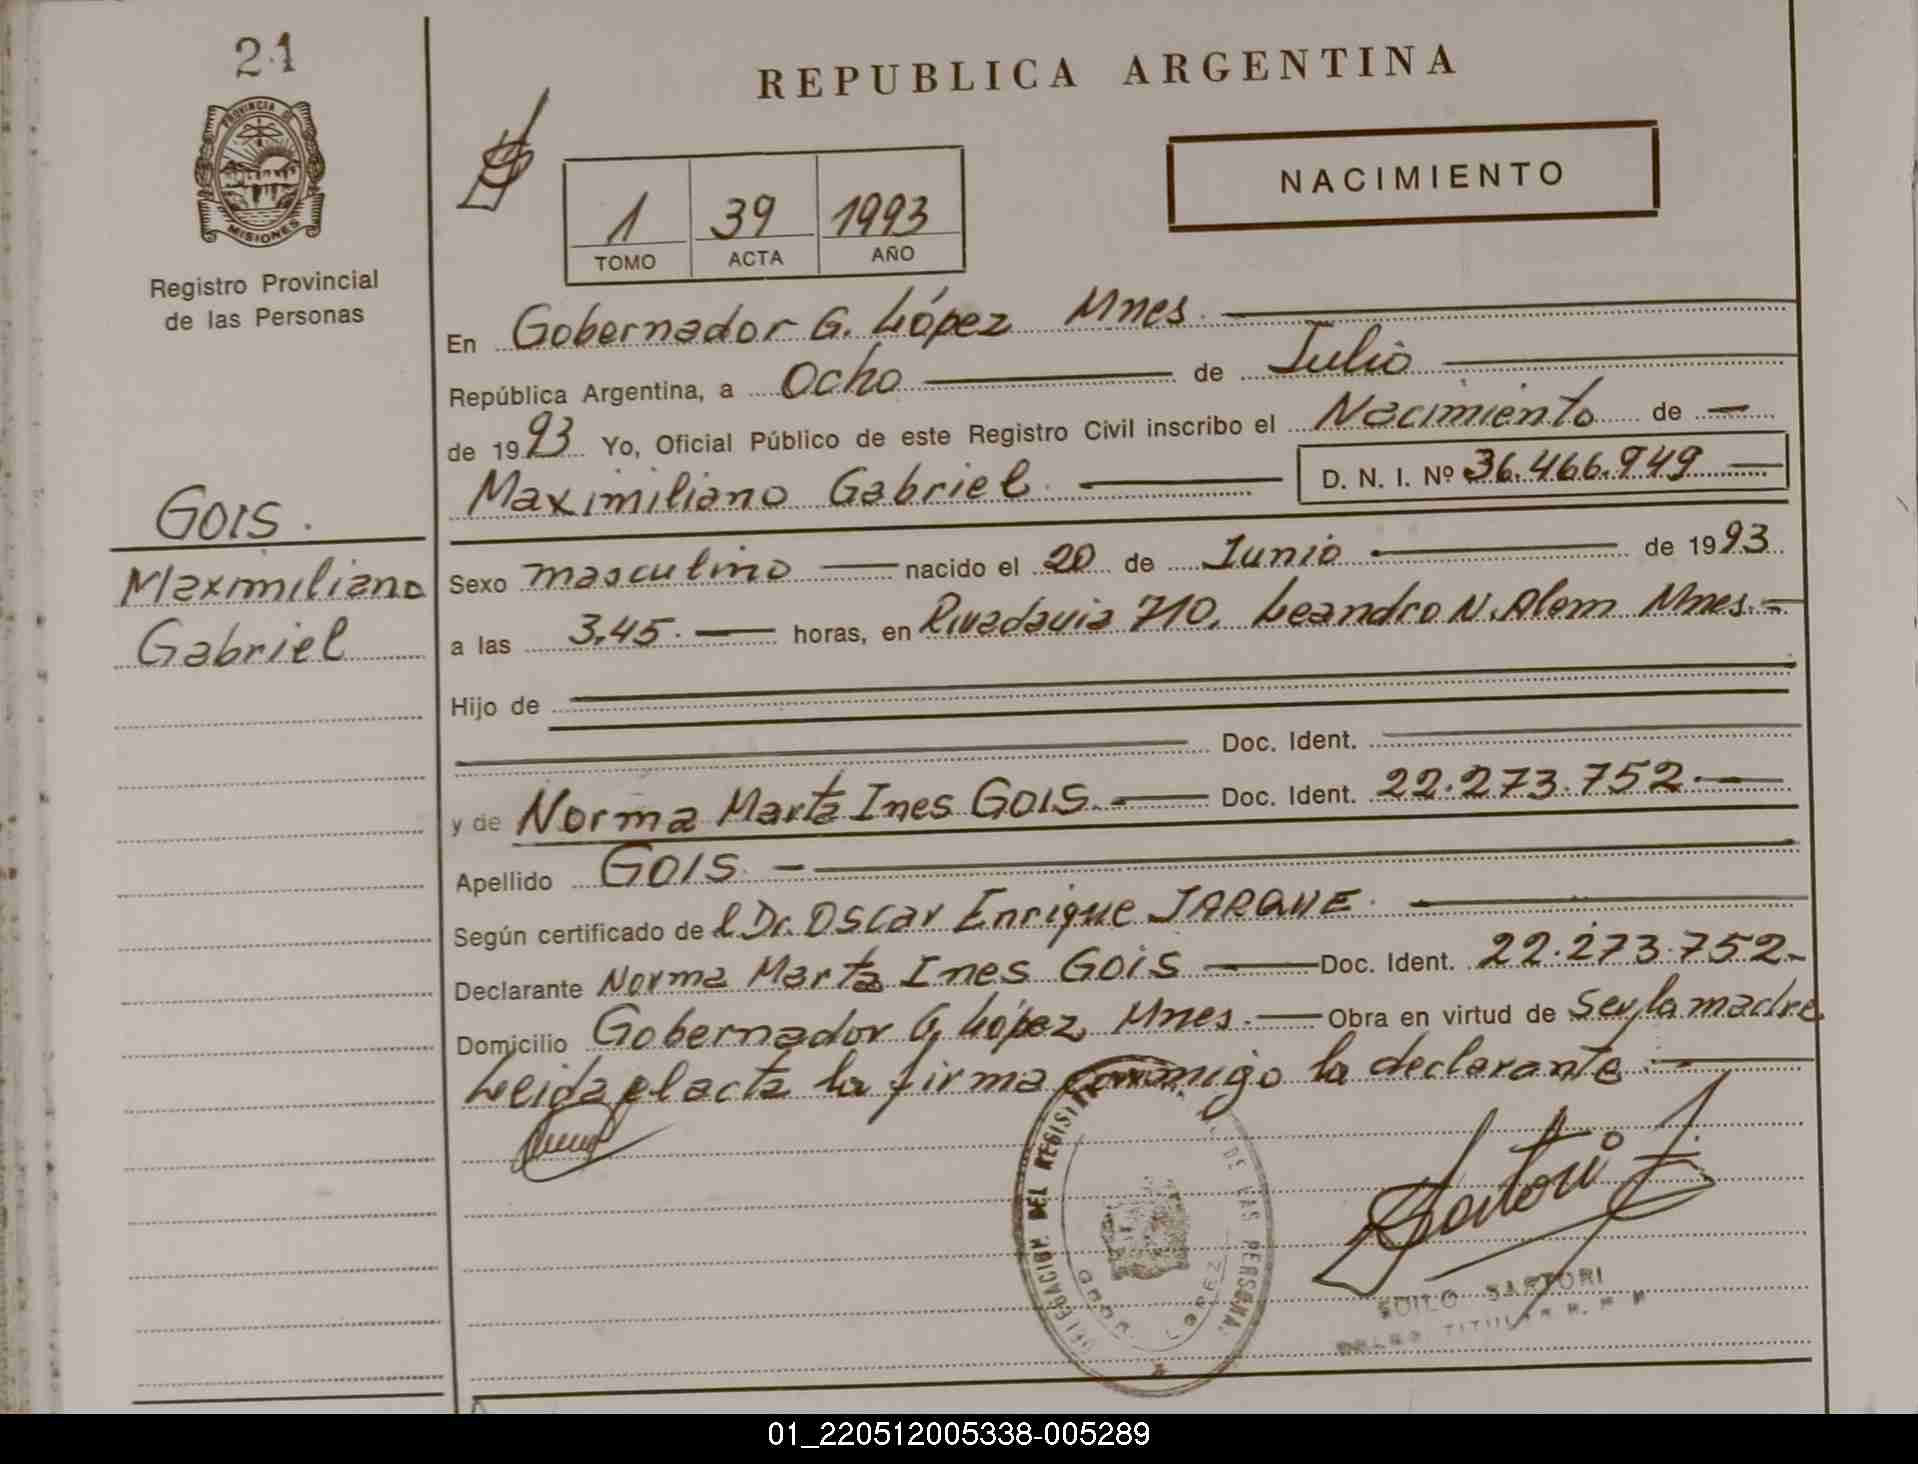 21
PROVINCIA DE
MISIONES
Registro Provincial
de las Personas
GOIS.
Maximiliano
Gabriel
REPUBLICA ARGENTINA
NACIMIENTO
1 39 1993
TOMO ACTA AÑO
En Gobernador G. López Mnes.
República Argentina, a Ocho de Julio
de 1993 Yo, Oficial Público de este Registro Civil inscribo el Nacimiento de
Maximiliano Gabriel D. N. I. Nº 36.466.949
Sexo masculino nacido el 20 de Junio de 1993
a las 3,45. horas, en Rivadavia 710, Leandro N. Alem Mnes.
Hijo de
Doc. Ident.
y de Norma Marta Ines GOIS. Doc. Ident. 22.273.752.
Apellido GOIS.
Según certificado del Dr. Oscar Enrique JARQUE.
Declarante Norma Marta Ines GOIS Doc. Ident. 22.273.752
Domicilio Gobernador G. López Mnes. Obra en virtud de Ser la madre
Leida el acta la firma conmigo la declarante.
DELEGACION DEL REGIST DE LAS PERSONA
LOPEZ
Sartori
SARTORI
TITULAR
01_220512005338-005289